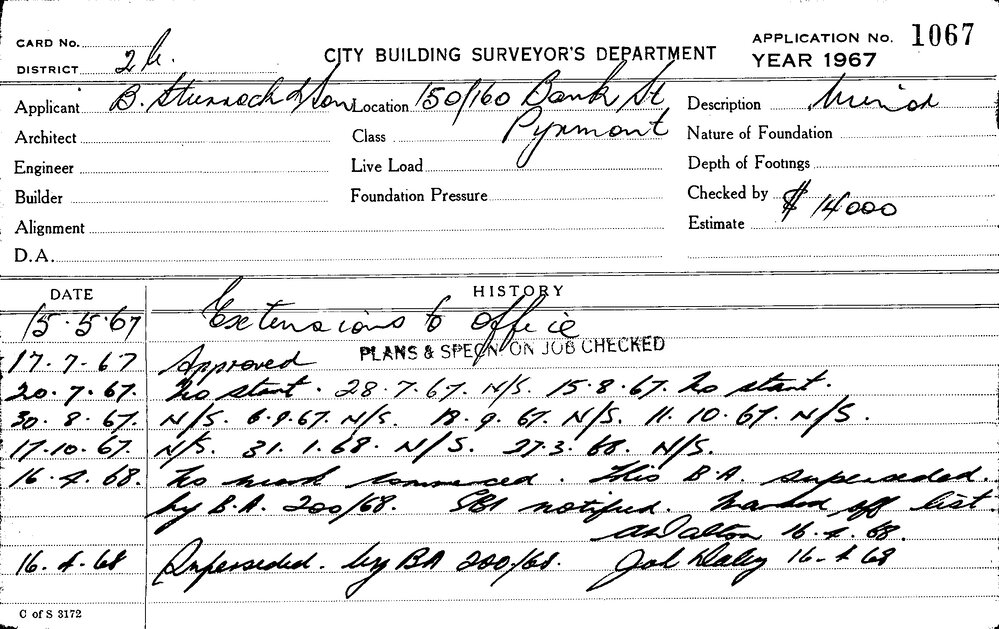 CARD No.
DISTRICT 2
CITY BUILDING SURVEYOR'S DEPARTMENT
APPLICATION No. 1067
YEAR 1967
Applicant B. Sturrock & Son Location 150/160 Bank St Description Minor
Pyrmont
Architect Class Nature of Foundation
Engineer Live Load Depth of Footings
Builder Foundation Pressure Checked by
Alignment Estimate $ 14000
D.A.
DATE HISTORY
15.5.67 Extensions to office
PLANS & SPECN ON JOB CHECKED
17.7.67 Approved
20.7.67. No start. 28.7.67. N/S. 15.8.67. No start.
30.8.67. N/S. 6.9.67. N/S. 18.9.67. N/S. 11.10.67. N/S.
17.10.67. N/S. 31.1.68. N/S. 27.3.68. N/S.
16.4.68. No work commenced. This B.A. superseded.
by B.A. 200/68. notified. Marked off list.
16.4.68.
16.4.68 Superseded. by BA 200/68. 16-4 68
C of S 3172